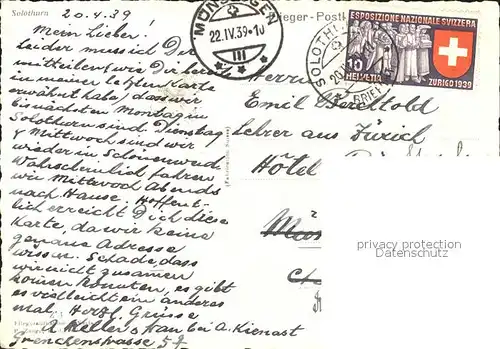 Solothurn
20.4.39
Mein Lieber!
Leider muss ich Dir
mitteilen, wie Dir bereits
in meiner letzten Karte
erwähnt habe, dass wir
bis nächsten Montag in
Solothurn sind. Dienstag
& Mittwoch sind wir
wieder in Schönenwerd
Wahrscheinlich fahren
wir Mittwoch Abends
nach Hause. Hoffent-
lich erreicht Dich diese
Karte, da wir keine
genaue Adresse
wissen. Schade, dass
wir nicht zusamen
komen konnten, es gibt
es vielleicht ein anderes
mal. Herzl. Grüsse
Keller & Frau bei A. Kienast
Grenchenstrasse 57
MÜNSINGEN
22.IV.39-10
III
Flieger-Postkarte
SOLOTHURN
BRIEF
ESPOSIZIONE NAZIONALE SVIZZERA
10
HELVETIA
ZURIGO 1939
Herrn
Emil
Lehrer aus Zürich
Hôtel
privacy protection
Datenschutz